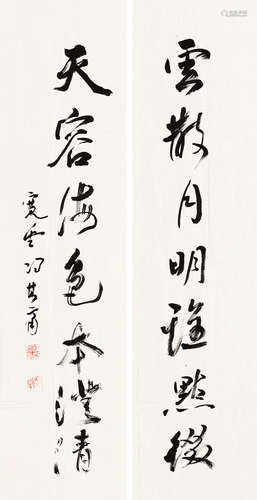 雲散月明誰點綴
天容海色本澄清
寬堂馮其庸